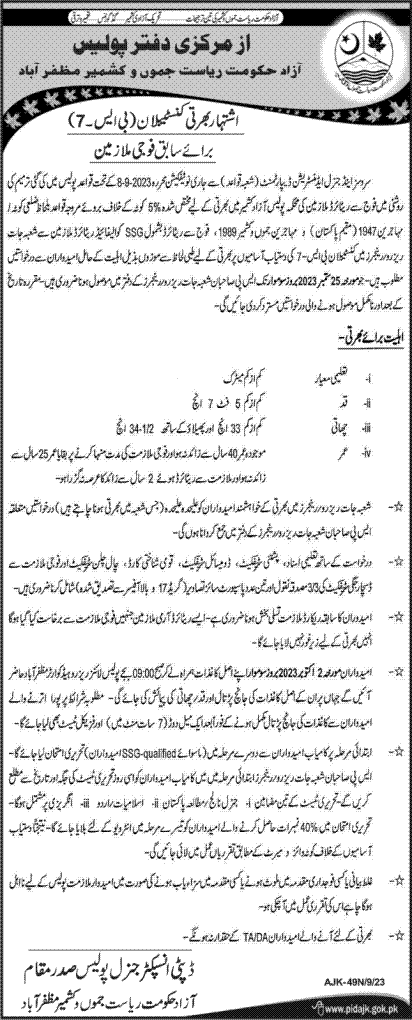 آزاد حکومت ریاست جموں کشمیر کی تین ترجیحات تحریک آزادی کشمیر گڈ گورننس تعمیر و ترقی
از مرکزی دفتر پولیس
آزاد حکومت ریاست جموں و کشمیر مظفر آباد
اشتہار بھرتی کنسٹیبلان (بی ایس۔7)
برائے سابق فوجی ملازمین
سروسز اینڈ جنرل ایڈمنسٹریشن ڈیپارٹمنٹ (شعبہ قواعد) سے جاری نوٹیفکیشن محررہ 2023-9-8 کے تحت قواعد پولیس میں کی گئی ترمیم کی
روشنی میں فوج سے ریٹائرڈ ملازمین کی محکمہ پولیس آزاد کشمیر میں بھرتی کے لیے مختص شدہ %5 کوٹہ کے خلاف بروئے مروجہ قواعد بلحاظ ضلعی کوٹہ/
مہاجرین 1947 (مقیم پاکستان) و مہاجرین جموں و کشمیر 1989، فوج سے ریٹائرڈ بشمول SSG کوالیفائیڈ ریٹائرڈ ملازمین سے شعبہ جات
ریزرو/رینجرز میں کنسٹیبلان بی ایس-7 کی دستیاب آسامیوں پر بھرتی کے لیے طبی لحاظ سے موزوں بذیل اہلیت کے حامل امیدواران سے درخواستیں
مطلوب ہیں۔ جو مورخہ 25 ستمبر 2023 بروز سوموار تک ایس پی صاحبان شعبہ جات ریزرو/رینجرز کے دفتر میں موصول ہونا ضروری ہیں۔ مقررہ تاریخ
کے بعد اور نامکمل موصول ہونے والی درخواستیں مسترد کر دی جائیں گی۔
اہلیت برائے بھرتی۔
i- تعلیمی معیار کم از کم میٹرک
ii- قد کم از کم 5 فٹ 7 انچ
iii- چھاتی کم از کم 33 انچ اور پھیلاؤ کے ساتھ 1/2-34 انچ
iv- عمر موجودہ عمر 40 سال سے زائد نہ ہو اور فوجی ملازمت کی مدت منہا کرنے پر بقایا عمر 25 سال سے
زائد نہ ہو اور ملازمت سے ریٹائرڈ ہوئے 2 سال سے زائد کا عرصہ نہ گزرا ہو۔
☆- شعبہ جات ریزرو/رینجرز میں بھرتی کے خواہشمند امیدواران کو علیحدہ علیحدہ (جس شعبہ میں بھرتی ہونا چاہتے ہیں) درخواستیں متعلقہ
ایس پی صاحبان شعبہ جات ریزرو/رینجرز کے دفتر میں جمع کروانا ہوں گی۔
☆- درخواست کے ساتھ تعلیمی اسناد، پشتنی سرٹیفکیٹ، ڈومیسائل سرٹیفکیٹ، قومی شناختی کارڈ، چال چلن سرٹیفکیٹ اور فوجی ملازمت سے
ڈسچارج سرٹیفکیٹ کی 3/3 مصدقہ نقول اور تین عدد پاسپورٹ سائز تصاویر (گریڈ 17 و بالا آفیسر سے تصدیق شدہ) شامل کرنا ضروری ہیں۔
☆- امیدواران کا سابقہ ریکارڈ ملازمت تسلی بخش ہونا ضروری ہے۔ ایسے ریٹائرڈ آرمی ملازمین جنہیں فوجی ملازمت سے برخاست کیا گیا ہوگا
انہیں بھرتی کے لیے زیر غور نہیں لایا جائے گا۔
☆- امیدواران مورخہ 2 اکتوبر 2023 بروز سوموار اپنے اصل کاغذات ہمراہ لے کر صبح 09:00 بجے پولیس لائنز ریزرو ہیڈ کوارٹر مظفر آباد حاضر
آئیں گے جہاں پر ان کے اصل کاغذات کی جانچ پڑتال اور قد اور چھاتی کی پیمائش کی جائے گی۔ مطلوبہ شرائط پر پورا اترنے والے
امیدواران سے کاغذات کی جانچ پڑتال مکمل ہونے کے فوراً بعد ایک میل دوڑ (7 سات منٹ میں) اور فزیکل ٹیسٹ بھی لیا جائے گا۔
☆- ابتدائی مرحلہ پر کامیاب امیدواران سے دوسرے مرحلہ میں (ماسوائے SSG-qualified امیدواران) تحریری امتحان لیا جائے گا۔
ایس پی صاحبان شعبہ جات ریزرو/رینجرز پہلے مرحلہ میں کامیاب امیدواران کو اسی روز تحریری ٹیسٹ کی جگہ اور تاریخ سے مطلع
کریں گے۔ تحریری ٹیسٹ کے تین مضامین i- جنرل نالج/مطالعہ پاکستان ii- اسلامیات/اردو iii- انگریزی پر مشتمل ہوگا۔
تحریری امتحان میں %40 نمبرات حاصل کرنے والے امیدواران کو تیسرے مرحلہ میں انٹرویو کے لئے بلایا جائے گا۔ نتیجتاً دستیاب
آسامیوں کے خلاف کوٹہ وائز و میرٹ کے مطابق تقرریاں عمل میں لائی جائیں گی۔
☆- غلط بیانی یا کسی فوجداری مقدمہ میں ملوث ہونے یا کسی مقدمہ میں سزا یاب ہونے کی صورت میں امیدوار ملازمت پولیس کے لیے نااہل
ہوگا چاہے اس کی تقرری عمل میں آچکی ہو۔
☆- بھرتی کے لئے آنے والے امیدواران TA/DA کے حقدار نہ ہونگے۔
ڈپٹی انسپکٹر جنرل پولیس صدر مقام
آزاد حکومت ریاست جموں و کشمیر مظفر آباد
AJK-49N/9/23
www.pidajk.gok.pk